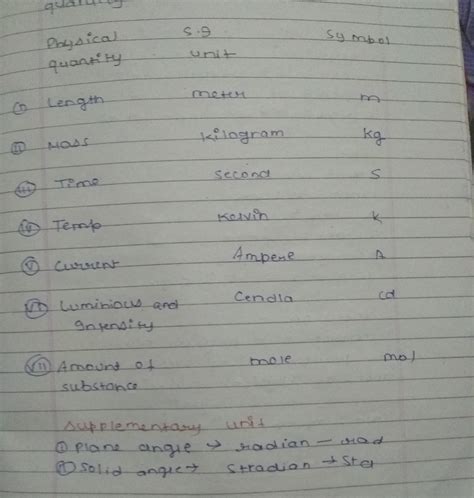 quantity
Physical S.I Symbol
quantity unit
(i) Length meter m
(ii) Mass kilogram kg
(iii) Time second s
(iv) Temp Kelvin k
(v) Current Ampere A
(vi) Luminious and Cendla cd
Intensity
(vii) Amount of mole mol
substance
Supplementary unit
(i) Plane angle → radian – rad
(ii) Solid angle → Stradian → Ster